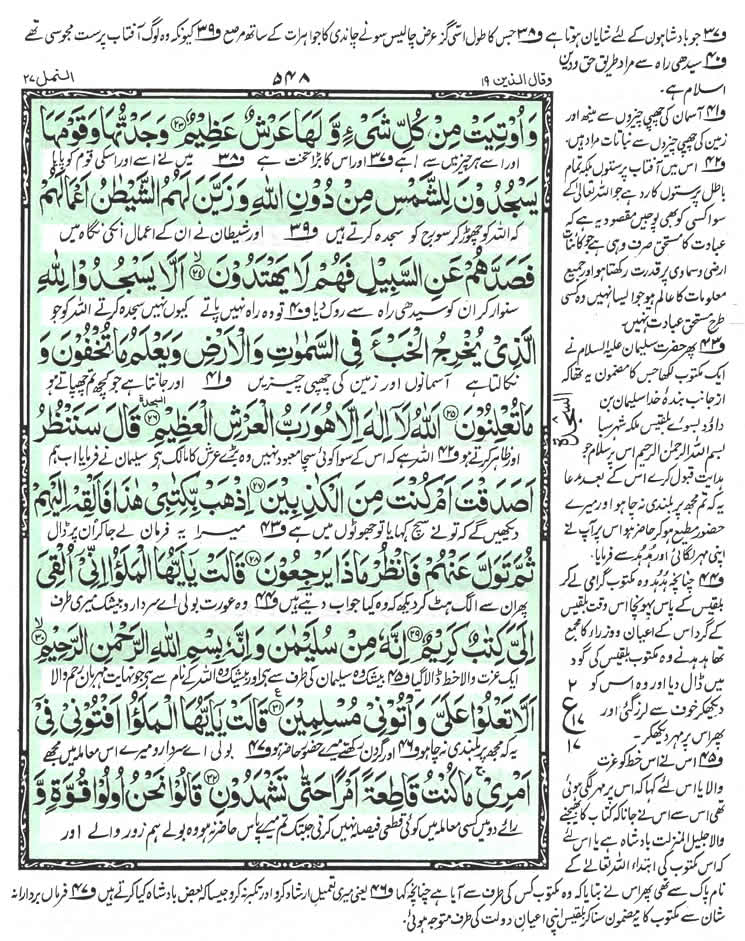 ف۳۷ جو بادشاہوں کے لئے شایان ہوتا ہے ف۳۸ جس کا طول اسی گز عرض چالیس سونے چاندی کا جواہرات کے ساتھ مرصع ف۳۹ کیونکہ وہ لوگ آفتاب پرست مجوسی تھے
ف۴۰ سیدھی راہ سے مراد طریق حق و دین
اسلام ہے۔
وقال الذین ۱۹
۵۴۸
النمل ۲۷
وَاُوْتِيَتْ مِنْ كُلِّ شَيْءٍ وَّ لَهَا عَرْشٌ عَظِيْمٌ ﴿۲۳﴾ وَجَدْتُّهَا وَقَوْمَهَا
اور اسے ہر چیز میں سے ملا ہے ف۳۷ اور اس کا بڑا تخت ہے ف۳۸ میں نے اسے اور اسکی قوم کو پایا
يَسْجُدُوْنَ لِلشَّمْسِ مِنْ دُوْنِ اللّٰهِ وَ زَيَّنَ لَهُمُ الشَّيْطٰنُ اَعْمَالَهُمْ
کہ اللہ کو چھوڑ کر سورج کو سجدہ کرتے ہیں ف۳۹ اور شیطان نے ان کے اعمال انکی نگاہ میں
فَصَدَّهُمْ عَنِ السَّبِيْلِ فَهُمْ لَا يَهْتَدُوْنَ ﴿۲۴﴾ اَلَّا يَسْجُدُوْا لِلّٰهِ
سنوار کر ان کو سیدھی راہ سے روک دیا ف۴۰ تو وہ راہ نہیں پاتے کیوں نہیں سجدہ کرتے اللہ کو جو
الَّذِيْ يُخْرِجُ الْخَبْءَ فِي السَّمٰوٰتِ وَ الْاَرْضِ وَ يَعْلَمُ مَا تُخْفُوْنَ وَ
نکالتا ہے آسمانوں اور زمین کی چھپی چیزیں ف۴۱ اور جانتا ہے جو کچھ تم چھپاتے ہو
مَا تُعْلِنُوْنَ ﴿۲۵﴾ اَللّٰهُ لَا اِلٰهَ اِلَّا هُوَ رَبُّ الْعَرْشِ الْعَظِيْمِ ﴿۲۶﴾ السجدة قَالَ سَنَنْظُرُ
اور ظاہر کرتے ہو ف۴۲ اللہ ہے کہ اس کے سوا کوئی سچا معبود نہیں وہ بڑے عرش کا مالک ہے سلیمان نے فرمایا اب ہم
اَصَدَقْتَ اَمْ كُنْتَ مِنَ الْكٰذِبِيْنَ ﴿۲۷﴾ اِذْهَبْ بِّكِتٰبِيْ هٰذَا فَاَلْقِهْ اِلَيْهِمْ
دیکھیں گے کہ تو نے سچ کہا یا تو جھوٹوں میں ہے ف۴۳ میرا یہ فرمان لے جا کر ان پر ڈال
ثُمَّ تَوَلَّ عَنْهُمْ فَانْظُرْ مَاذَا يَرْجِعُوْنَ ﴿۲۸﴾ قَالَتْ يٰاَيُّهَا الْمَلَؤُا اِنِّيْ اُلْقِيَ
پھر ان سے الگ ہٹ کر دیکھ کہ وہ کیا جواب دیتے ہیں ف۴۴ وہ عورت بولی اے سردارو بیشک میری طرف
اِلَيَّ كِتٰبٌ كَرِيْمٌ ﴿۲۹﴾ اِنَّهٗ مِنْ سُلَيْمٰنَ وَ اِنَّهٗ بِسْمِ اللّٰهِ الرَّحْمٰنِ الرَّحِيْمِ ﴿۳۰﴾
ایک عزت والا خط ڈالا گیا ف۴۵ بیشک وہ سلیمان کی طرف سے ہے اور بیشک وہ اللہ کے نام سے ہے جو نہایت مہربان رحم والا
اَلَّا تَعْلُوْا عَلَيَّ وَ اْتُوْنِيْ مُسْلِمِيْنَ ﴿۳۱﴾ ع قَالَتْ يٰاَيُّهَا الْمَلَؤُا اَفْتُوْنِيْ فِيْ
یہ کہ مجھ پر بلندی نہ چاہو ف۴۶ اور گردن رکھتے میرے حضور حاضر ہو ف۴۷ بولی اے سردارو میرے اس معاملہ میں مجھے
اَمْرِيْ مَا كُنْتُ قَاطِعَةً اَمْرًا حَتّٰى تَشْهَدُوْنِ ﴿۳۲﴾ قَالُوْا نَحْنُ اُولُوْا قُوَّةٍ وَّ
رائے دو میں کسی معاملہ میں کوئی قطعی فیصلہ نہیں کرتی جب تک تم میرے پاس حاضر نہ ہو وہ بولے ہم زور والے اور
ف۴۱ آسمان کی چھپی چیزوں سے مینھ اور
زمین کی چھپی چیزوں سے نباتات مراد ہیں۔
ف۴۲ اس میں آفتاب پرستوں بلکہ تمام
باطل پرستوں کا رد ہے جو اللہ تعالیٰ کے
سوا کسی کو بھی پوجیں مقصود یہ ہے کہ
عبادت کا مستحق صرف وہی ہے جو کائنات
ارضی و سماوی پر قدرت رکھتا ہو اور جمیع
معلومات کا عالم ہو جو ایسا نہیں وہ کسی
طرح مستحق عبادت نہیں۔
ف۴۳ پھر حضرت سلیمان علیہ السلام نے
ایک مکتوب لکھا جس کا مضمون یہ تھا کہ
از جانب بندۂ خدا سلیمان بن
داؤد بسوئے بلقیس ملکہ شہر سبا
بسم اللہ الرحمٰن الرحیم اس پر سلام جو
ہدایت قبول کرے اس کے بعد مدعا
یہ کہ تم مجھ پر بلندی نہ چاہو اور میرے
حضور مطیع ہو کر حاضر ہو اس پر آپ نے
اپنی مہر لگائی اور ہدہد سے فرمایا۔
ف۴۴ چنانچہ ہدہد وہ مکتوب گرامی لے کر
بلقیس کے پاس پہونچا اس وقت بلقیس
کے گرد اس کے اعیان و وزراء کا مجمع
تھا ہدہد نے وہ مکتوب بلقیس کی گود
میں ڈال دیا اور وہ اس کو
دیکھ کر خوف سے لرز گئی اور
پھر اس پر مہر دیکھ کر۔
السجدة
۲
ع
۱۷
۱۷
ف۴۵ اس نے اس خط کو عزت
والا یا اس لئے کہا کہ اس پر مہر لگی ہوئی
تھی اس سے اس نے جانا کہ کتاب کا بھیجنے
والا جلیل المنزلت بادشاہ ہے یا اس لئے
کہ اس مکتوب کی ابتداء اللہ تعالیٰ کے
نام پاک سے تھی پھر اس نے بتایا کہ وہ مکتوب کس کی طرف سے آیا ہے چنانچہ کہا ف۴۶ یعنی میری تعمیل ارشاد کرو اور تکبر نہ کرو جیسا کہ بعض بادشاہ کیا کرتے ہیں ف۴۷ فرماں بردارانہ
شان سے مکتوب کا یہ مضمون سنا کر بلقیس اپنی اعیان دولت کی طرف متوجہ ہوئی۔